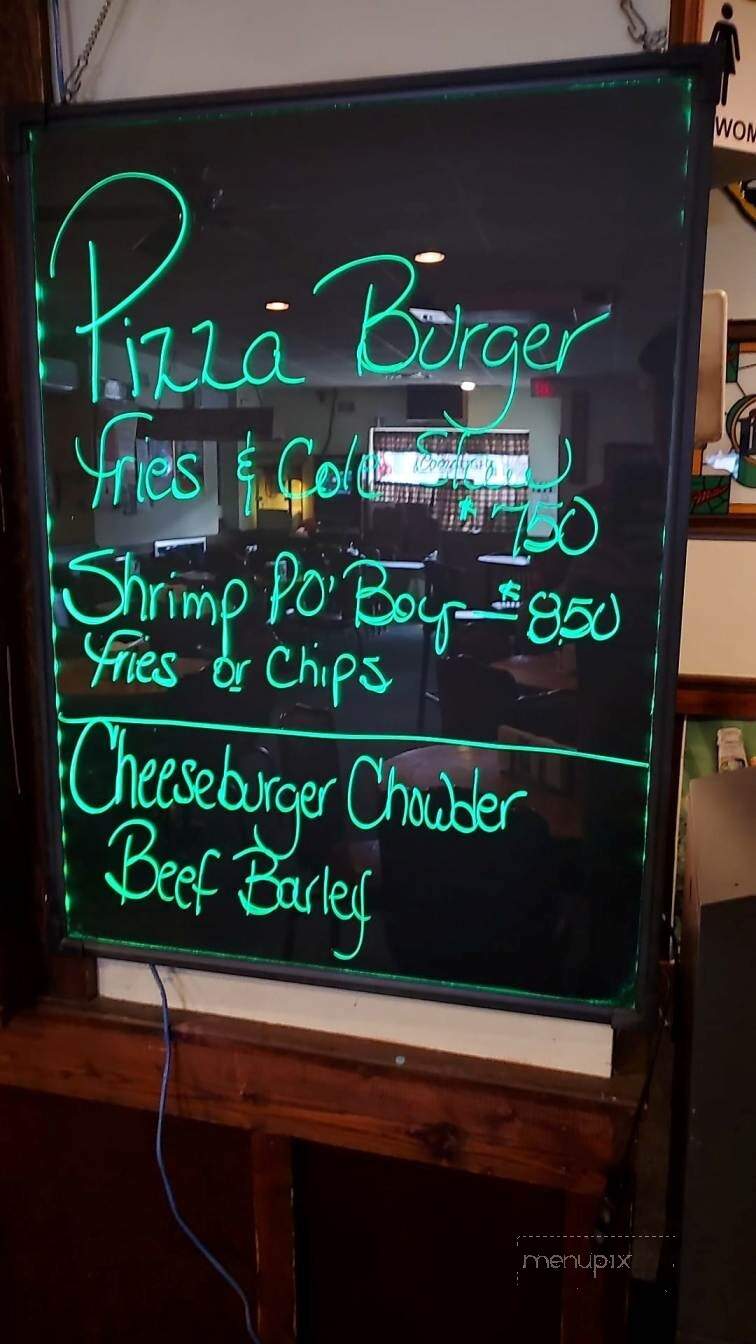 WOM
Pizza Burger
Fries & Cole Slaw
$750
Shrimp PO' Boy - $850
Fries or Chips
Cheeseburger Chowder
Beef Barley
menupix